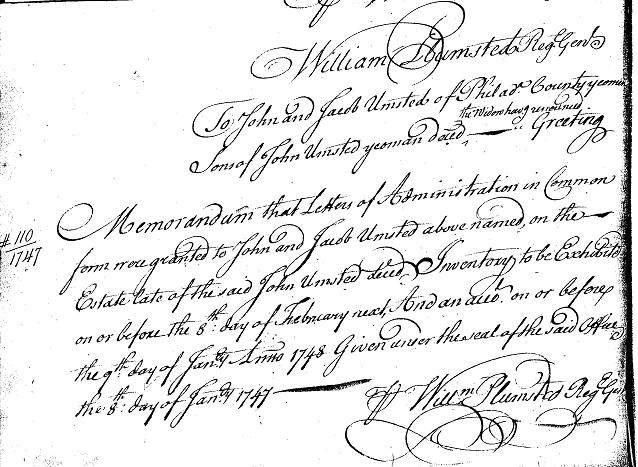 William Plumsted Reg: Genl
To John and Jacob Umsted of Philada County yeomen
the Widow havg renounced
Sons of John Umsted yeoman decd, — Greeting
# 110
1747
Memorandum that Letters of Administration in Common
form were granted to John and Jacob Umsted above named, on the —
Estate late of the said John Umsted decd, Inventory to be Exhibited
on or before the 8th: day of February next, And an acct. on or before
the 9th day of Janry Anno 1748 Given under the seal of the said Office
the 8th: day of Janry 1747 —
Willm Plumsted Reg Genl